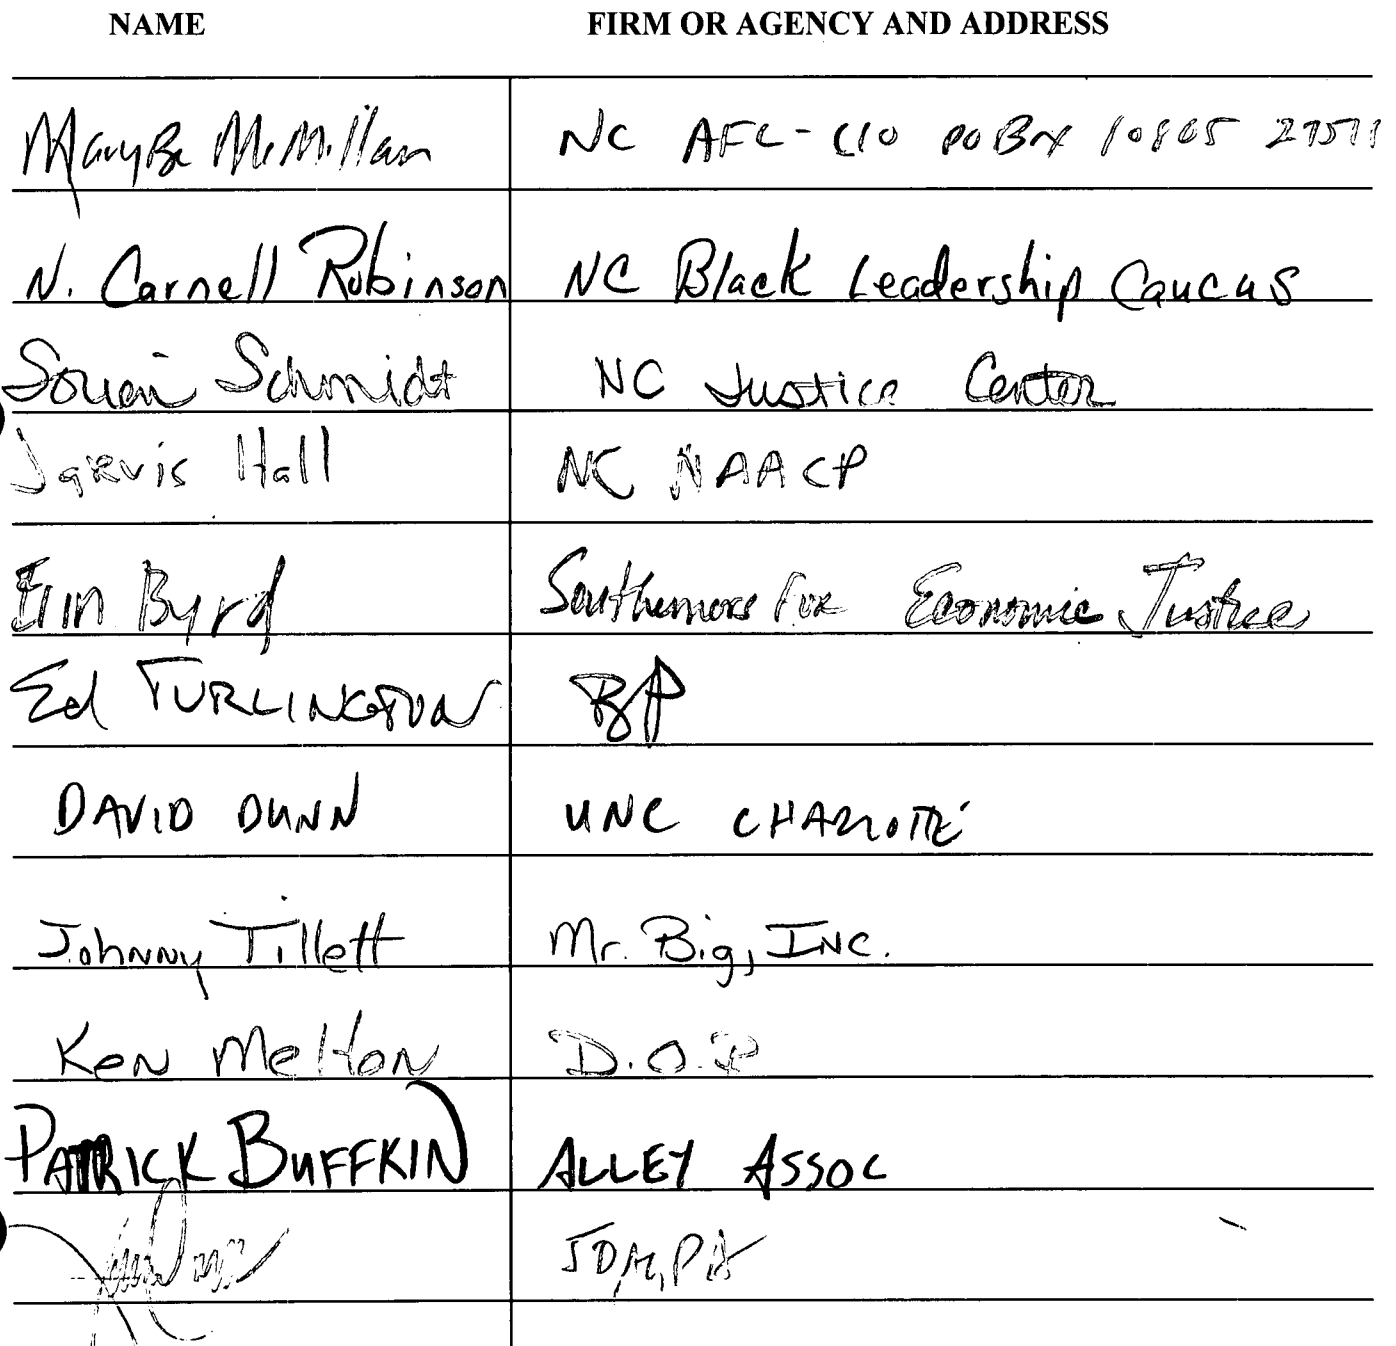 NAME FIRM OR AGENCY AND ADDRESS
MaryBe McMillan NC AFL-CIO PO Box 10805
N. Carnell Robinson NC Black Leadership Caucus
Schmidt NC Justice Center
Jarvis Hall NC NAACP
Erin Byrd Southerners For Economic Justice
Ed TURLINGTON
DAVID DUNN UNC CHARLOTTE
Johnny Tillett Mr. Big, INC.
Ken Melton
PATRICK BUFFKIN ALLEY ASSOC